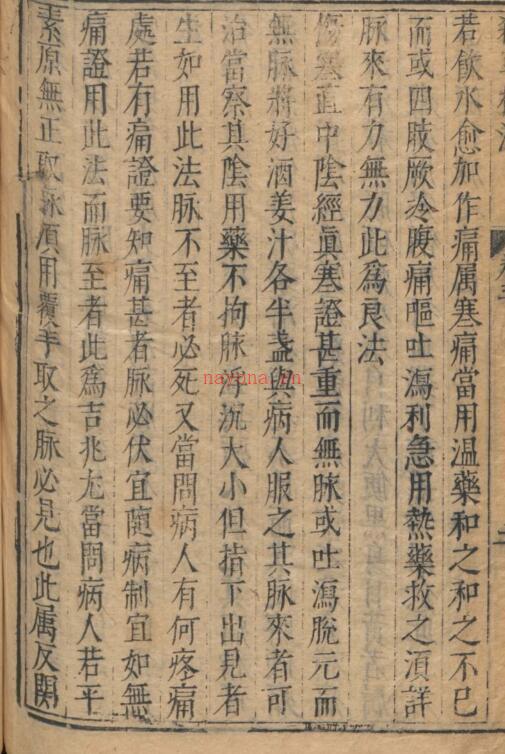 若飲水愈加作痛属寒痛當用温藥和之和之不已
而或四肢厥冷腹痛嘔吐瀉利急用熱藥救之湏詳
脉來有力無力此爲良法
傷寒直中陰經眞寒證甚重而無脉或吐瀉脫元而
無脉將好酒姜汁各半盞與病人服之其脉來者可
治當察其陰用藥不拘脉浮沉大小但指下出見者
生如用此法脉不至者必死又當問病人有何疼痛
處若有痛證要知痛甚者脉必伏宜隨病制宜如無
痛證用此法而脉至者此爲吉兆尤當問病人若平
素原無正取脉湏用覆手取之脉必見也此属反關
nayona.cn